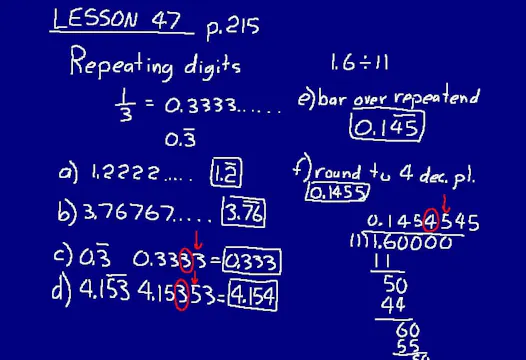 LESSON 47 p.215
Repeating digits
1/3 = 0.3333......
0.3̅
a) 1.2222..... 1.2̅
b) 3.76767..... 3.7̅6̅
c) 0.3̅ 0.3333=0.333
d) 4.15̅3̅ 4.15353=4.154
1.6÷11
e) bar over repeatend
0.14̅5̅
f) round to 4 dec. pl.
0.1455
0.1454545
11)1.60000
11
50
44
60
55
50